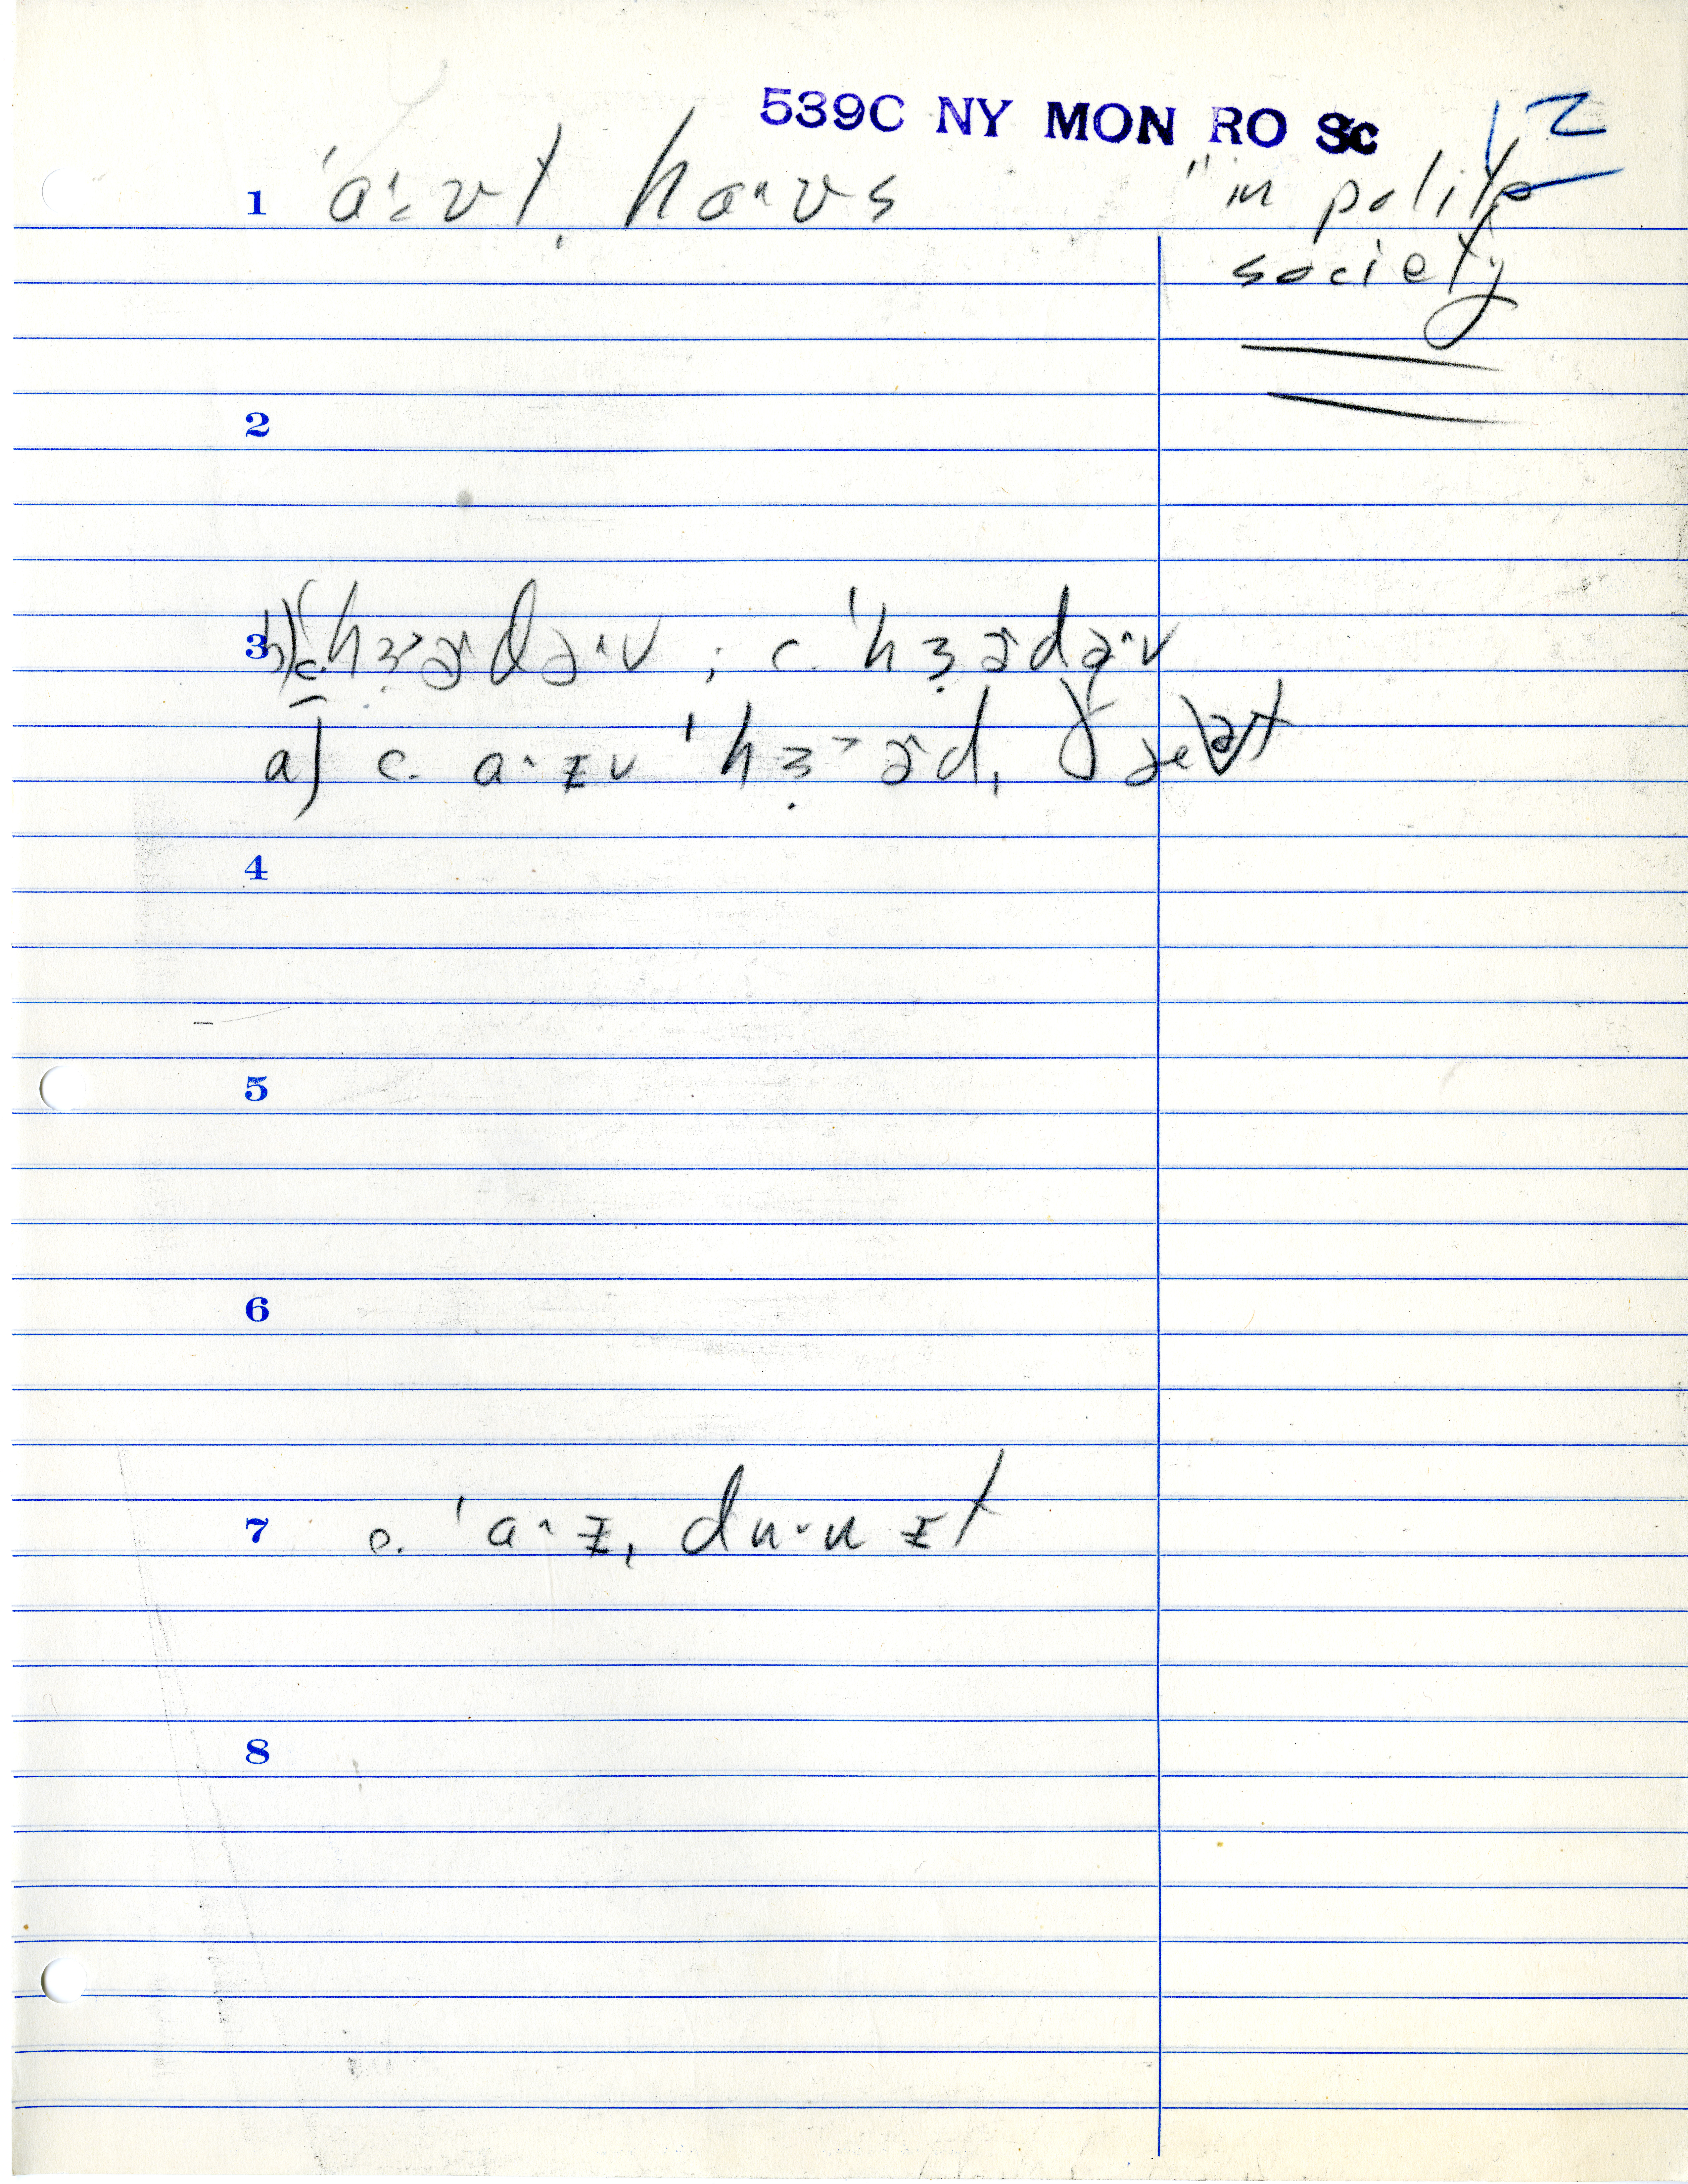 539C NY MON RO Sc 12
1 ˈa·ʊt ˌha·ʊs "in polite
society
2
3 b) c. ˈhɜ˃ɚdə·v ; c. ˈhɜɚdə·v
a) c. a·zv ˈhɜ˃ɚd ˌðæt
4
5
6
7 c. ˈa·z ˌdu·u zt
8